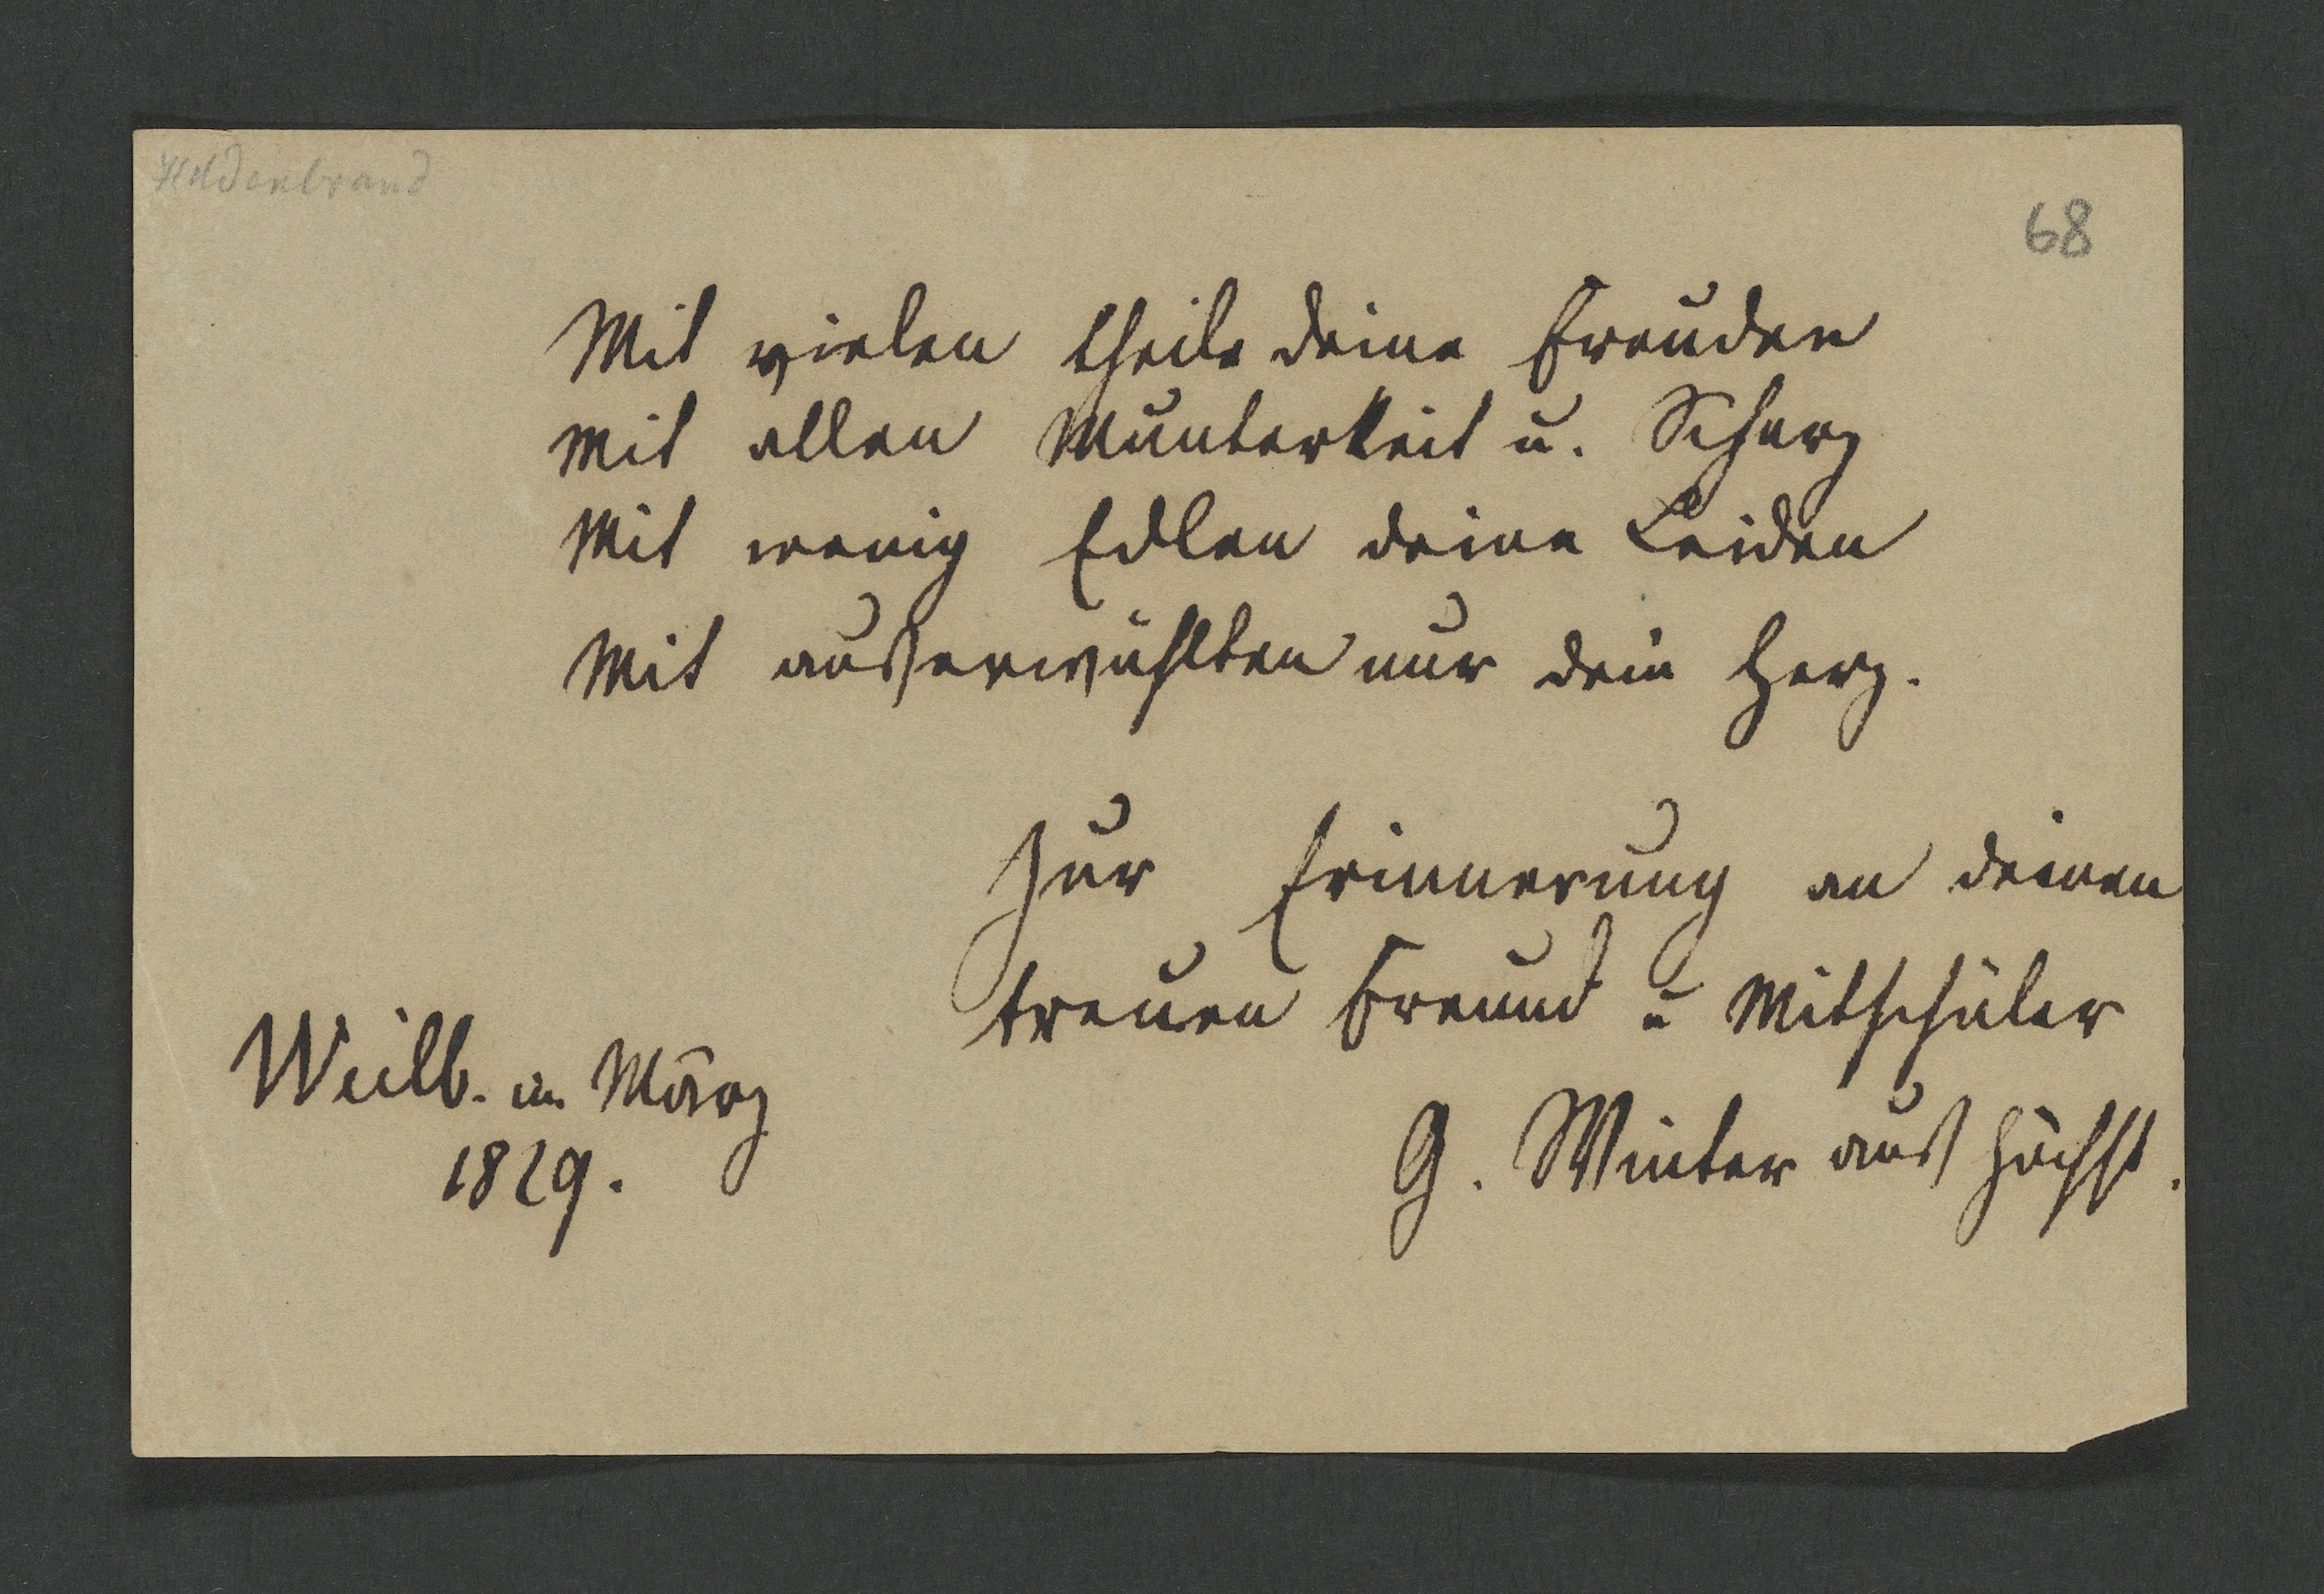 Hildenbrand
68
Mit vielen theile deine Freuden
Mit allen Munterkeit u. Scherz
Mit wenig Edlen deine Leiden
Mit auserwählten nur dein Herz.
Zur Erinnerung an deinen
treuen Freund u Mitschüler
G. Winter aus Höchst.
Weilb. im März
1829.